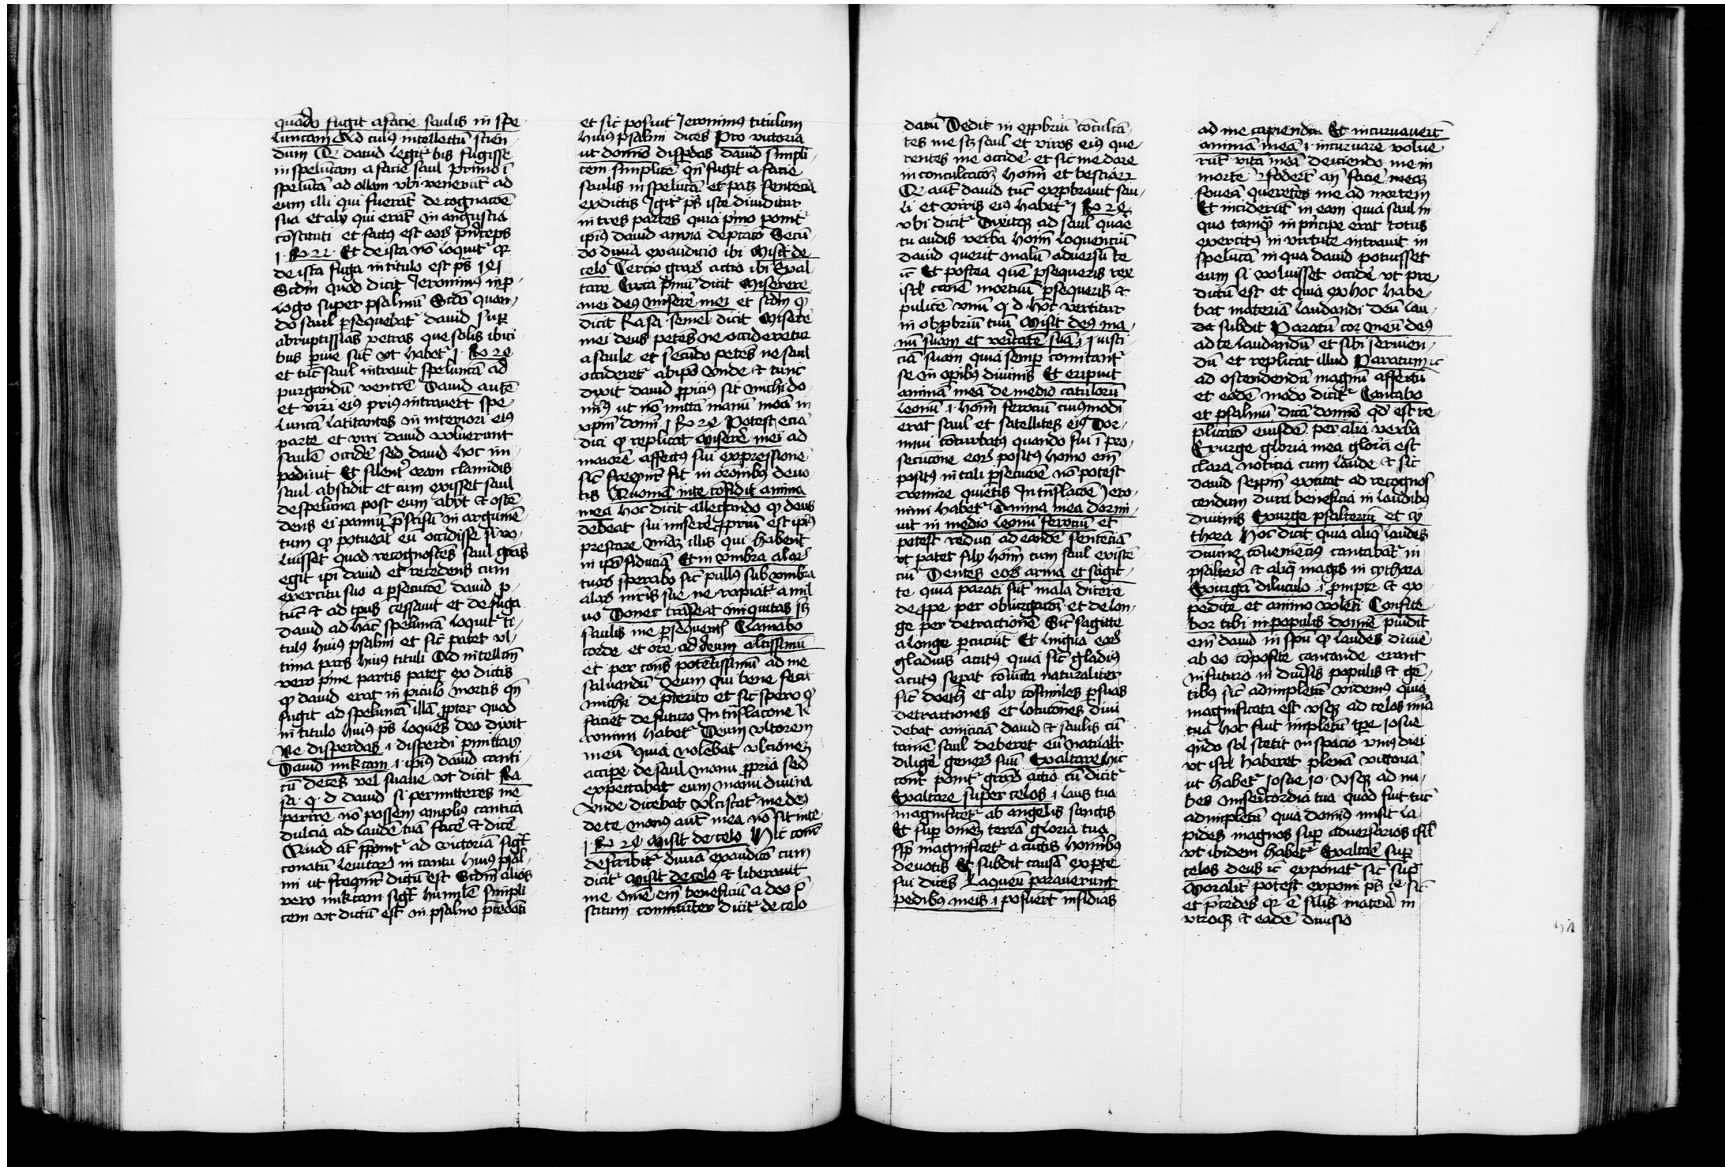 quando fugit a facie saulis in spe-
luncam Ad cuius intellectū scien-
dum Qr dauid legit bis fugisse
in speluncam a facie saul primo ī
speluncā ad ollam vbi venerūt ad
eum illi qui fuerāt de cognacōe
sua et alij qui erāt in angustia
cōstituti et factus est eor princeps
1 Ro 22 Et de ista nō loquit qr
de ista fuga in titulo est ps 141
Scdm quod dicit Jeronimus in p-
logo super psalmū Scdo quan-
do saul psequebat dauid sup
abruptissias petras que solis ibici
bus puie sūt vt habet 1 Ro 24
et tūc saul intrauit speluncā ad
purgandū ventrē Dauid autē
et viri eius prius intrauert spe
luncā latitantes in interiori eius
parte et viri dauid voluerunt
saulē occidē sed dauid hoc im-
pediuit Et silent oram clamidis
saul abscidit et cum exisset saul
de spelunca post eum abijt et ostē
dens ei pannū pscisū in argumē
tum qp potuerat eū occidisse si vo-
luisset quod recognoscēs saul grās
egit ipi dauid et recedens cum
exercitu suo a psecucōe dauid p
tūc et ad tpus cessauit et de fuga
dauid ad hāc speluncā loquit ti-
tulus huius psalmi et sic patet vl-
tima pars huius tituli Ad intellm
vero pme partis patet ex dictis
qp dauid erat in piculo mortis qn
fugit ad speluncā illā ppter quod
in titulo huius ps loquēs deo dixit
Ne disperdas i disperdi pmittas
Dauid miktam i ipius dauid canti-
cū decēs vel suaue vt dicit Ra
sa q d dauid si permitteres me
perire nō possem amplius cantica
dulcia ad laudē tuā facē et dicē
Quod at pponit ad victoriā sigt
conatū leuitar in cantu huius psal-
mi ut freqnt dictū est Scdm alios
vero miktam sigt humilē simpli
cem vt dictū est in psalmo pcedēti
et sic posuit Jeronimus titulum
huius psalmi dicēs Pro victoria
ut donno dispdas dauid simpli
cem simplicē qn fugit a facie
saulis in speluncā et patz sentēcia
ex dictis Igit ps iste diuiditur
in tres partes quia pmo ponit
ipius dauid anxia depcatō Secū-
do diuia exaudicio ibi Misit de
celo Tercio grās actio ibi Exal-
tare Circa pmū dicit Miserere
mei deus miserē mei et scdm qp
dicit Rasa semel dicit Miserē
mei deus petēs ne occideretur
a saule et secūdo petēs ne saul
occideret ab ipo vnde et tunc
dixit dauid ppicius sit michi do-
mīus ut nō mittā manū meā in
xpm domi 1 Ro 24 Potest eciā
dici qp replicat miserē mei ad
maiorē affectus sui expressione
sic freqnt fit in orōnibus deuo-
tis Quoniā in te cōfidit anima
mea hoc dicit allegando qp deus
debeat sui miserē ppriū est ipius
prestare vmbz illis qui habent
in ipō fiduciā Et in vmbra alar
tuar sperabo sic pullus sub vmbra
alar mris sue ne rapiat a mil
uo Donec trāseat iniquitas sz
saulis me psequent Clamabo
corde et ore ad deum altissimū
et per cons potētissimū ad me
saluandū deum qui bene fecit
michi de pterito et sic spero qp
faciet de futuro In trāslacone Je
ronimi habet Deum vltorem
meū quia nolebat vlcionez
accipe de saul manu ppria sed
expectabat eum manu diuina
vnde dicebat vlciscat me deus
de te manus aut mea nō sit in te
1 Ro 24 Misit de celo Hic cont
describit diuiā exaudicō cum
dicit Misit de celo et liberauit
me Omē eni beneficiū a deo p-
stitum communiter dicit de celo
datū Dedit in opprbriū cōculcā-
tes me sz saul et viros eius que-
rentes me occidē et sic me dare
in conculcacōz homi et bestiar
Qr aut dauid tūc exprbrauit sau-
li et viris eius habet 1 Ro 24
vbi dicit Dixitqz ad saul quare
tu audis verba homi loquenciū
dauid querit malū aduersū te
ic Et postea quē psequeris rex
isrl canē mortuū psequeris et
pulicē vnū q d hoc vertitur
in obprbriū tuū Misit deus ma-
nū suam et veritatē suā i iusti-
ciā suam quia semp comitant
se in opibus diuinis Et eripuit
animā meā de medio catulorū
leonū i homi ferociū cuiusmodi
erat saul et satellites eius Dor-
miui cōturbatus quando fui ī pro-
secucone eor positus homo eni
positus in tali psecucōe nō potest
dormire quietus In trāslacōe Jero-
nimi habet Anima mea dormi-
uit in medio leonū ferociū et
potest reduci ad eandē sentenciā
vt patet Filij homi cum saul existē
ciū Dentes eor arma et sagit-
te quia parati sūt mala dicere
de ppe per obiurgacōz et de lon-
ge per detractione Sic sagitte
a longe pcuciūt Et lingua eor
gladius acutus quia sic gladius
acutus sepat cōiūcta naturaliter
sic doech et alij cōsimiles p suas
detractiones et locutiones diui
debāt amiciciā dauid et saulis cū
tamē saul deberet eū naturalit
diligē generū suū Exaltare hic
cont ponit grār actio cū dicit
Exaltare super celos i laus tua
magnificet ab angelis sanctis
Et sup omēz terrā gloria tua
sz magnificet a cūctis homibus
deuotis Et subdit causā ex pte
sui dicēs Laqueū parauerunt
pedibus meis i posuert insidias
ad me capiendū Et incuruauert
animā meā i incuruare volue
rūt vitā meā deiciendo me in
morte Foderūt an faciē meaz
foueā querētes me ad mortem
Et inciderūt in eam quia saul in
quo tamqz in pncipe erat totus
exercitus in virtute intrauit in
speluncā in qua dauid potuisset
eum si voluisset occidē vt pre
dictū est et quia ex hoc habe-
bat materiā laudandi deū lau-
da subdit Paratū cor meū deus
ad te laudandū et tibi seruien-
dū et replicat illud Paratum ic
ad ostendendū magnū affectū
et eodē modo dicit Cantabo
et psalmū dicā domno qd est re
plicatō eiusdē per alia verba
Exurge gloria mea gloria est
clara noticia cum laude et sic
dauid semp extitit ad recognos
cendum dura beneficia in laudibus
diuinis Exurge psalteriū et cy
thara Hoc dicit quia aliq laudes
diuine cōuenieius cantabāt in
psalterio et aliq magis in cythara
Exurgā diluculo i prompte et ex-
pedite et animo volēti Confite
bor tibi in populis domne puidit
eni dauid in spū qp laudes diuie
ab eo cōposite cantande erant
in futuro in diusis populis et gē-
tibus sic adimpletū videmus quia
magnificata est vsqz ad celos mīa
tua hoc fuit impletū tpe iosue
qndo sol stetit in spacio vnius diei
vt isrl haberet plenā victoriā
ut habet iosue 10 vsqz ad nu-
bes misericordia tua quod fuit tūc
adimpletū quia domīus misit la-
pides magnos sup aduersarios isrl
vt ibidem habet Exaltare sup
celos deus ic exponat sic sup
Moralit potest exponi ps te sic
et pcedēs qr ē silis materia in
vtroqz et eadē diuisio